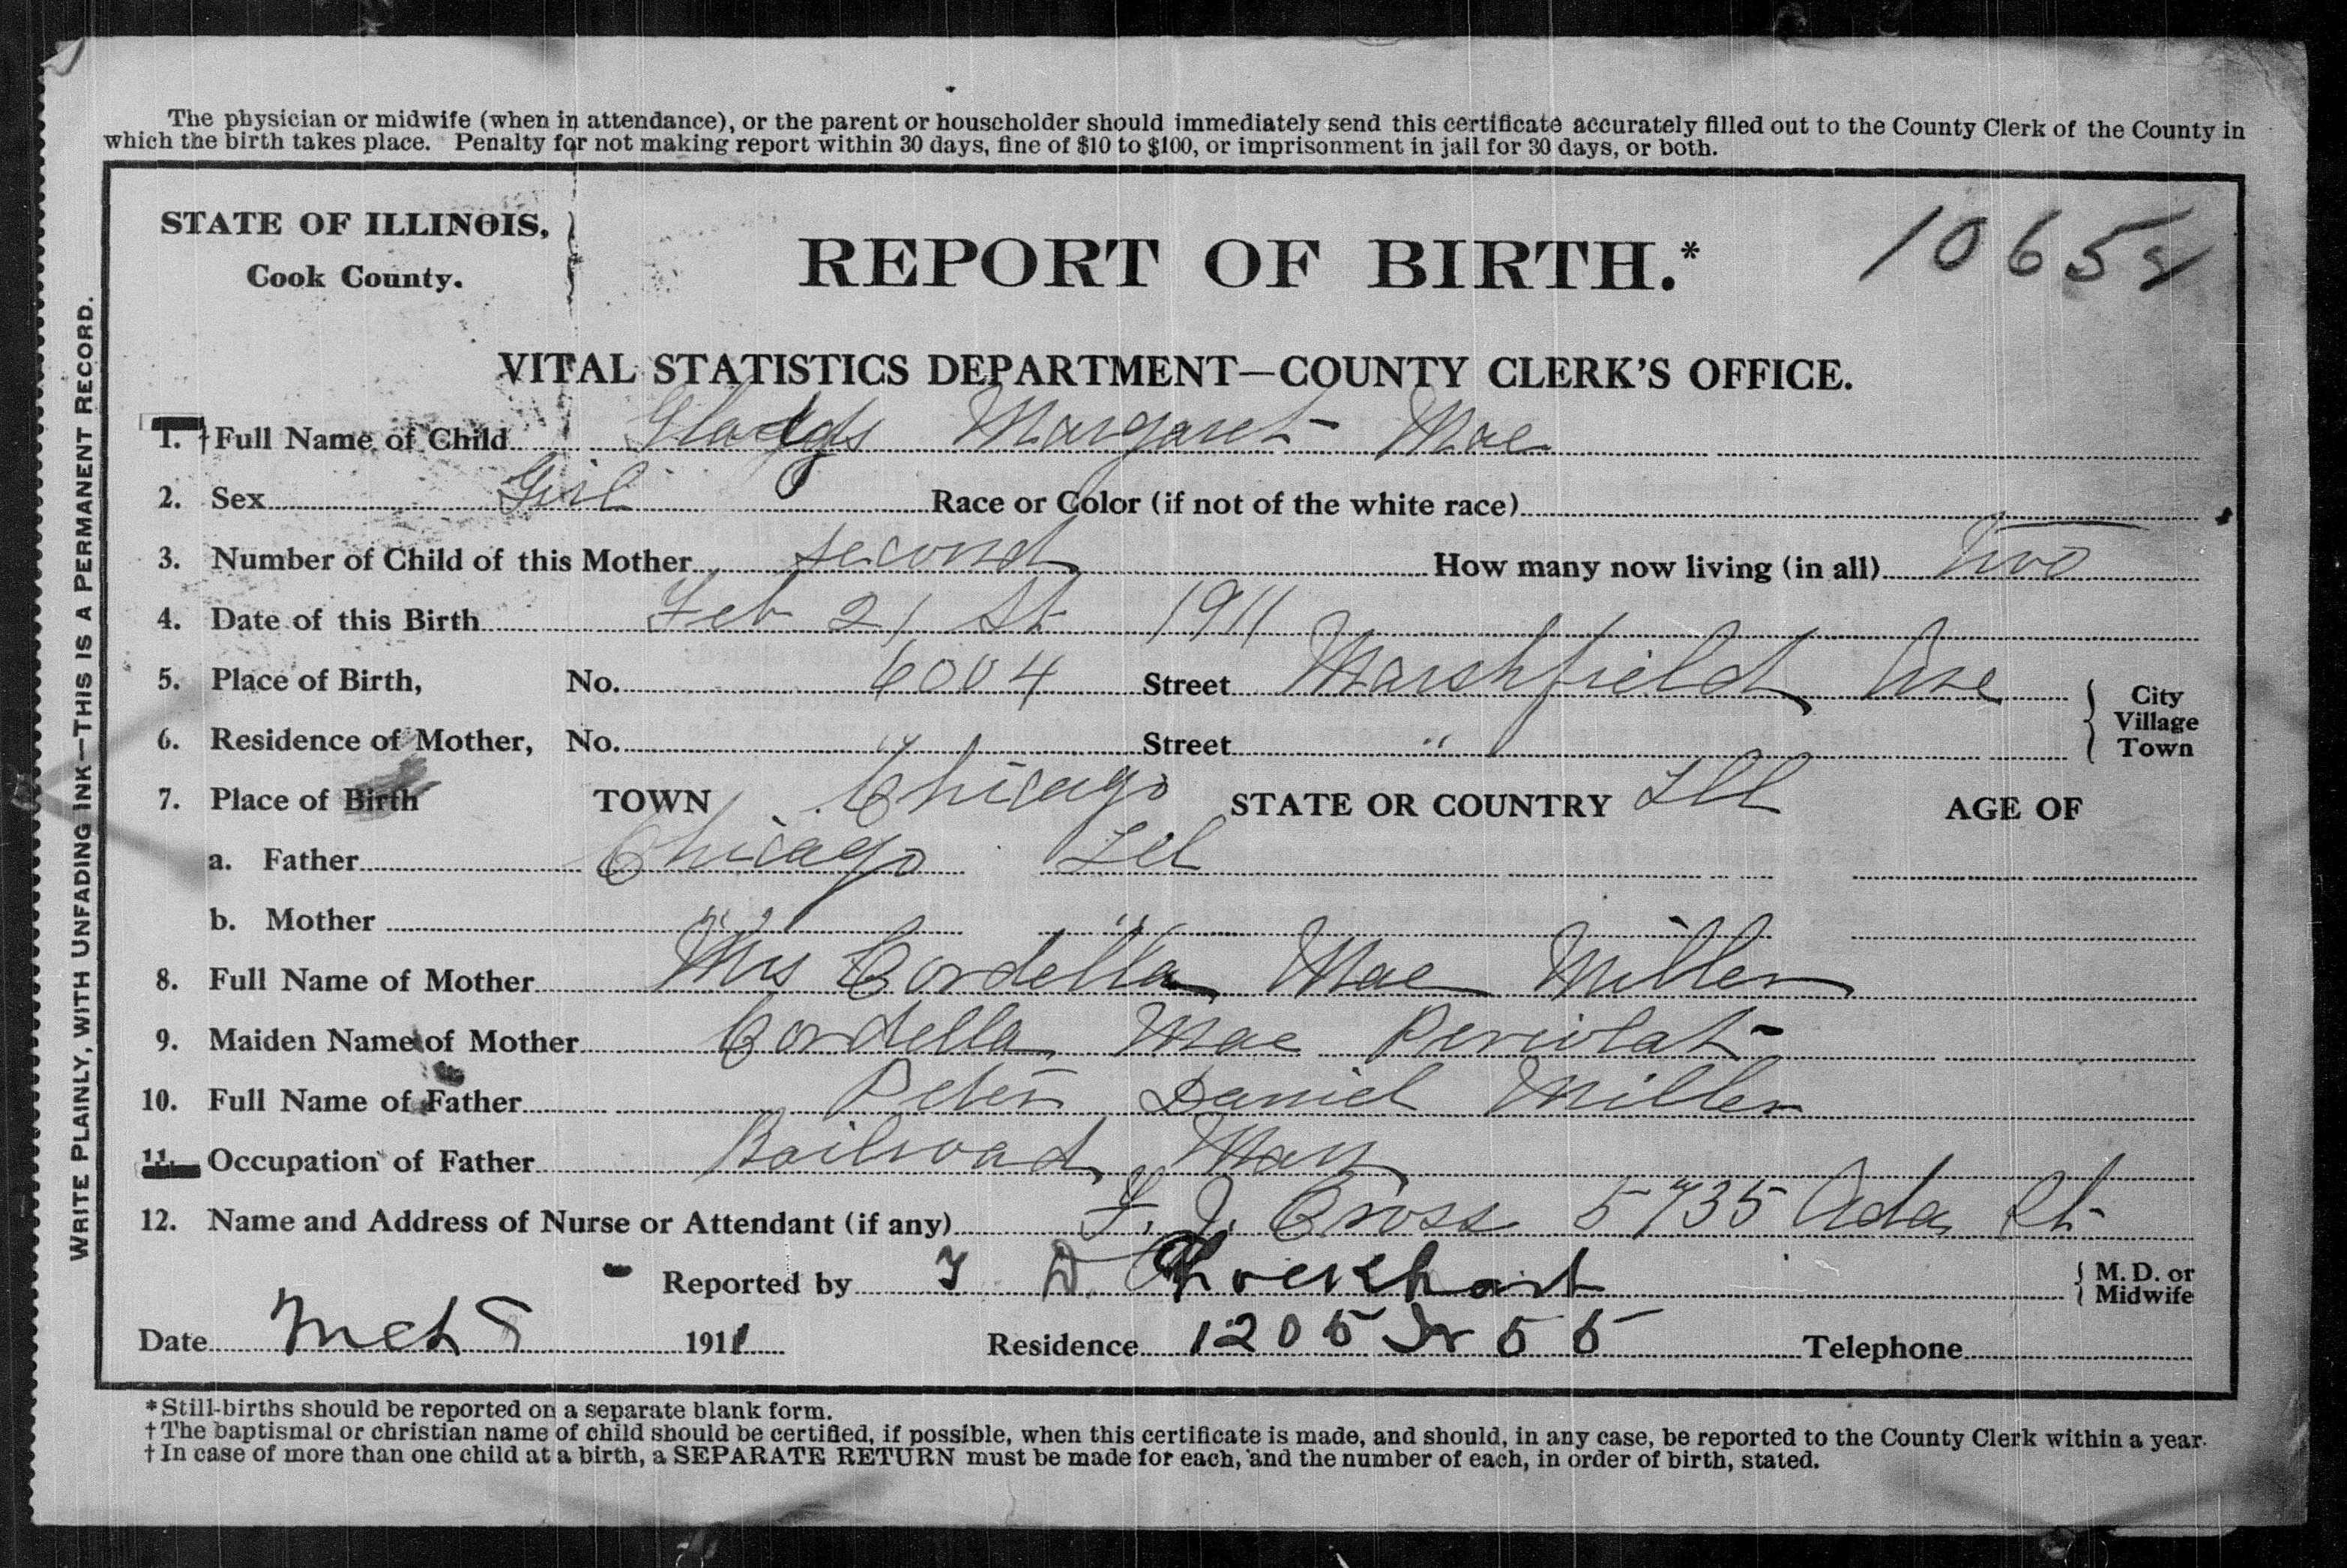 The physician or midwife (when in attendance), or the parent or householder should immediately send this certificate accurately filled out to the County Clerk of the County in
which the birth takes place. Penalty for not making report within 30 days, fine of $10 to $100, or imprisonment in jail for 30 days, or both.
WRITE PLAINLY, WITH UNFADING INK—THIS IS A PERMANENT RECORD.
STATE OF ILLINOIS,
Cook County.
REPORT OF BIRTH.*
1065
VITAL STATISTICS DEPARTMENT—COUNTY CLERK'S OFFICE.
1. †Full Name of Child Gladys Margaret Mae
2. Sex Girl Race or Color (if not of the white race)
3. Number of Child of this Mother second How many now living (in all) Two
4. Date of this Birth Feb 21 St 1911
5. Place of Birth, No. 6004 Street Marshfield Ave { City
Village
6. Residence of Mother, No. " Street " Town
7. Place of Birth TOWN Chicago STATE OR COUNTRY Ill AGE OF
a. Father Chicago Ill
b. Mother " "
8. Full Name of Mother Mrs Cordella Mae Miller
9. Maiden Name of Mother Cordella Mae Periolat
10. Full Name of Father Peter Daniel Miller
11. Occupation of Father Railroad Man
12. Name and Address of Nurse or Attendant (if any) F. J. Cross 5735 Ada St
Reported by D. Lockhart { M. D. or
Midwife
Date Mch 8 1911 Residence 1205 55 Telephone
*Still-births should be reported on a separate blank form.
†The baptismal or christian name of child should be certified, if possible, when this certificate is made, and should, in any case, be reported to the County Clerk within a year.
†In case of more than one child at a birth, a SEPARATE RETURN must be made for each, and the number of each, in order of birth, stated.